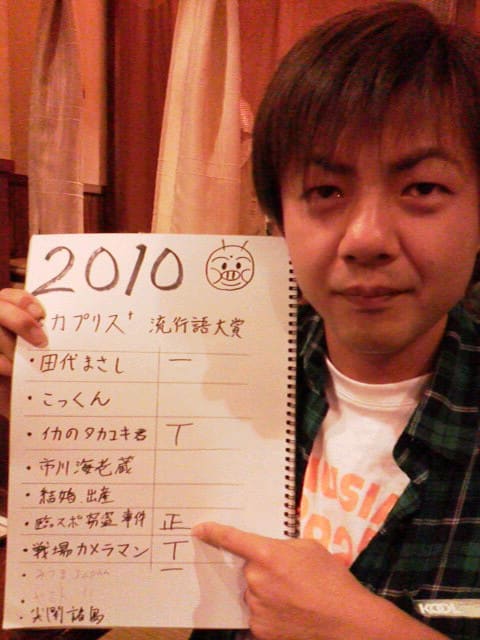 2010
カプリス† 流行語大賞
・田代まさし 一
・こっくん
・イカのタカユキ君 丅
・市川海老蔵
・結婚、出産
事件 正
・戦場カメラマン 丅
一
・尖閣諸島
KOOL